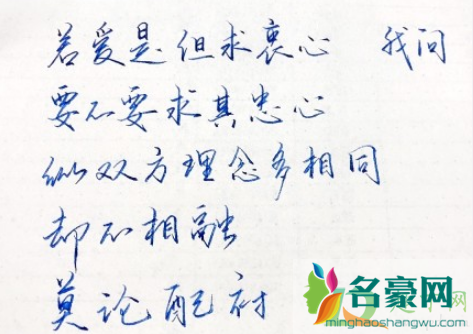 若爱是但求衷心 我问
要不要求其忠心
纵双方理念多相同
却不相融
莫论配衬
名豪网
minghaoshangwu.com